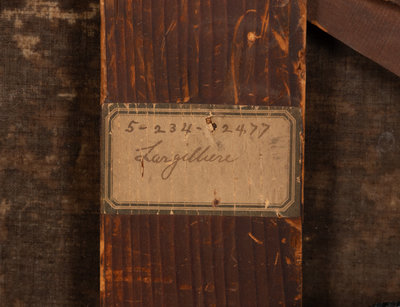 5-234-2477
Largilliere